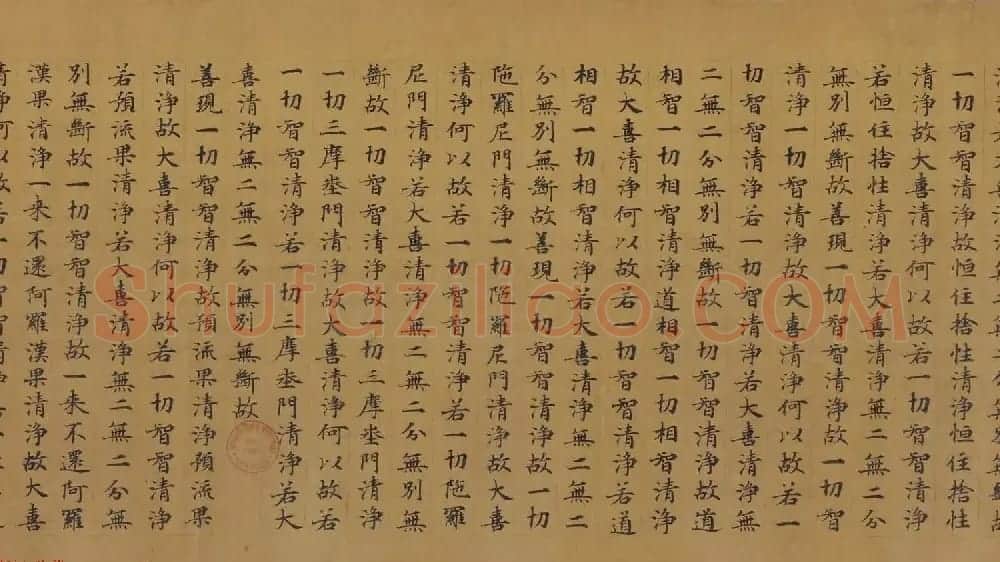 一切智智清淨故恒住捨性清淨恒住捨性
清淨故大喜清淨何以故若一切智智清淨
若恒住捨性清淨若大喜清淨無二無二分
無別無斷故善現一切智智清淨故一切智
清淨一切智清淨故大喜清淨何以故若一
切智智清淨若一切智清淨若大喜清淨無
二無二分無別無斷故一切智智清淨故道
相智一切相智清淨道相智一切相智清淨
故大喜清淨何以故若一切智智清淨若道
相智一切相智清淨若大喜清淨無二無二
分無別無斷故善現一切智智清淨故一切
陁羅尼門清淨一切陁羅尼門清淨故大喜
清淨何以故若一切智智清淨若一切陁羅
尼門清淨若大喜清淨無二無二分無別無
斷故一切智智清淨故一切三摩埊門清淨
一切三摩埊門清淨故大喜清淨何以故若
一切智智清淨若一切三摩埊門清淨若大
喜清淨無二無二分無別無斷故
善現一切智智清淨故預流果清淨預流果
清淨故大喜清淨何以故若一切智智清淨
若預流果清淨若大喜清淨無二無二分無
別無斷故一切智智清淨故一来不還阿羅
漢果清淨一来不還阿羅漢果清淨故大喜
Shufaziliao.COM